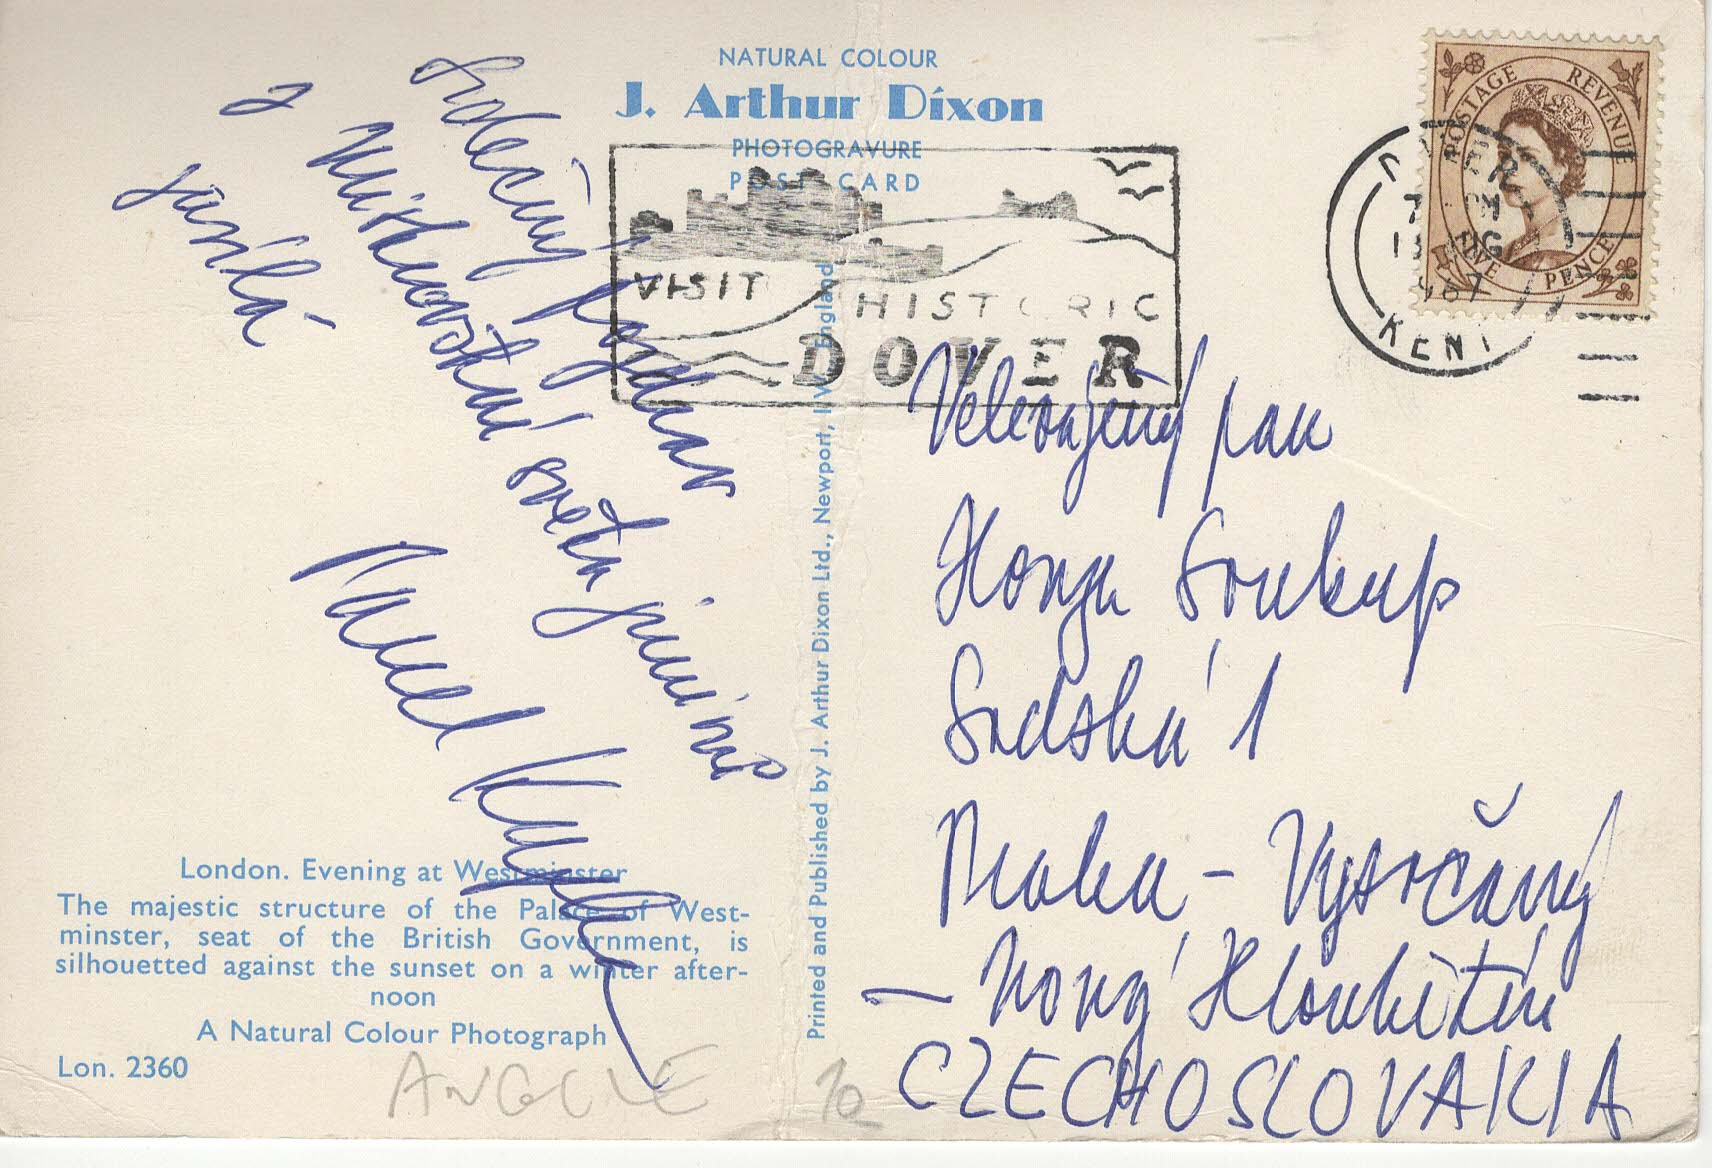 NATURAL COLOUR
J. Arthur Dixon
PHOTOGRAVURE
POST CARD
VISIT HISTORIC
DOVER
POSTAGE REVENUE
NINE PENCE
KENT
Srdečný pozdrav
z
světa
posílá
Pavel
London. Evening at Westminster
The majestic structure of the Palace of West-
minster, seat of the British Government, is
silhouetted against the sunset on a winter after-
noon
A Natural Colour Photograph
Lon. 2360
ANGLIE
10
Printed and Published by J. Arthur Dixon Ltd., Newport, I.W., England
Velevážený pan
Honza Soukup
Sadská 1
Praha - Vysočany
- Nový Hloubětín
CZECHOSLOVAKIA